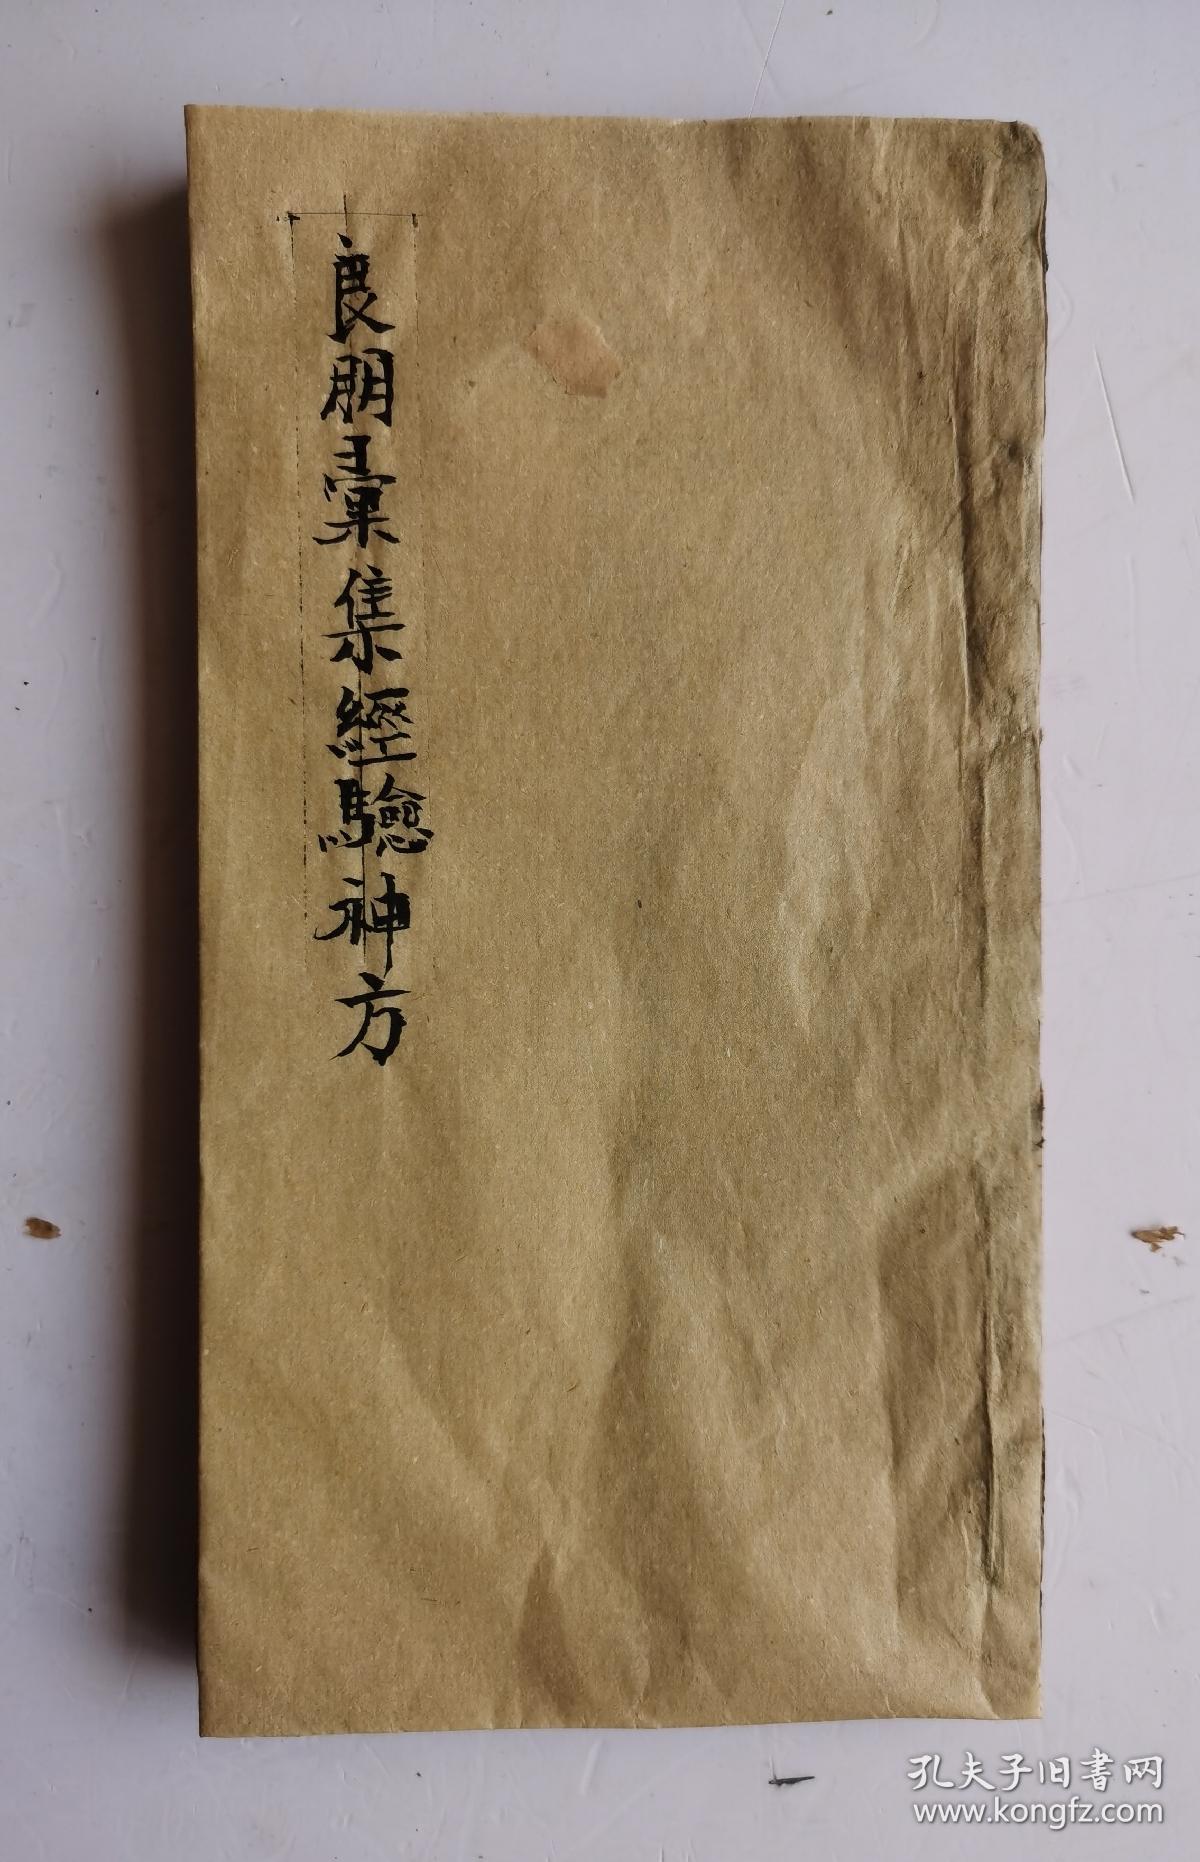 良朋彙集經驗神方
孔夫子旧書网
www.kongfz.com